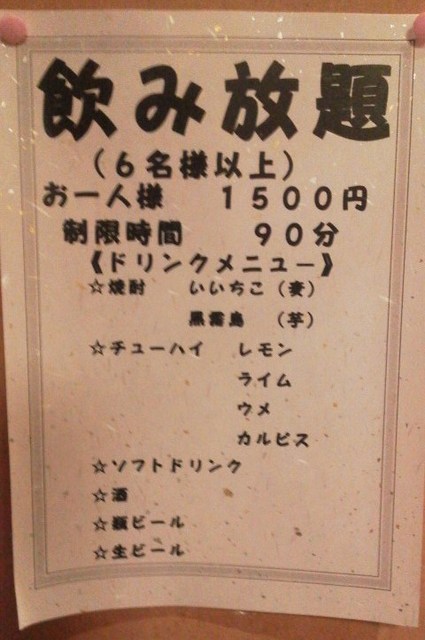 飲み放題
（６名様以上）
お一人様　１５００円
制限時間　９０分
《ドリンクメニュー》
☆焼酎　いいちこ（麦）
黒霧島　（芋）
☆チューハイ　レモン
ライム
ウメ
カルピス
☆ソフトドリンク
☆酒
☆瓶ビール
☆生ビール